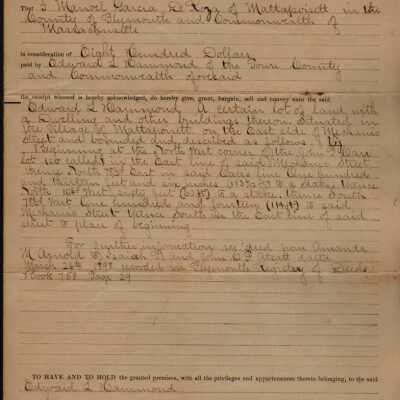 That I, Manoel Garcia De Roza of Mattapoisett in the
County of Plymouth and Commonwealth of
Massachusetts
in consideration of Eight Hundred Dollars
paid by Edward L Hammond of the Town County
and Commonwealth aforesaid
the receipt whereof is hereby acknowledged, do hereby give, grant, bargain, sell and convey unto the said
Edward L Hammond A certain lot of land with
a Dwelling and other buildings thereon situated in
the village of Mattapoisett on the East side of Mechanic
Street and bounded and described as follows
Beginning at the North West corner of the John
Lot so called in the East line of said Mechanic Street
thence North East in said line One hundred
and thirteen feet and six inches to a stake, thence
North West sixty feet to a stake, thence South
West One hundred and fourteen to said
Mechanic Street thence South in the East line of said
street to place of beginning.
For further information see deed from Amanda
M Arnold
March 24th 1898 recorded in Plymouth Registry of Deeds
Book 768 Page 29
TO HAVE AND TO HOLD the granted premises, with all the privileges and appurtenances thereto belonging, to the said
Edward L Hammond